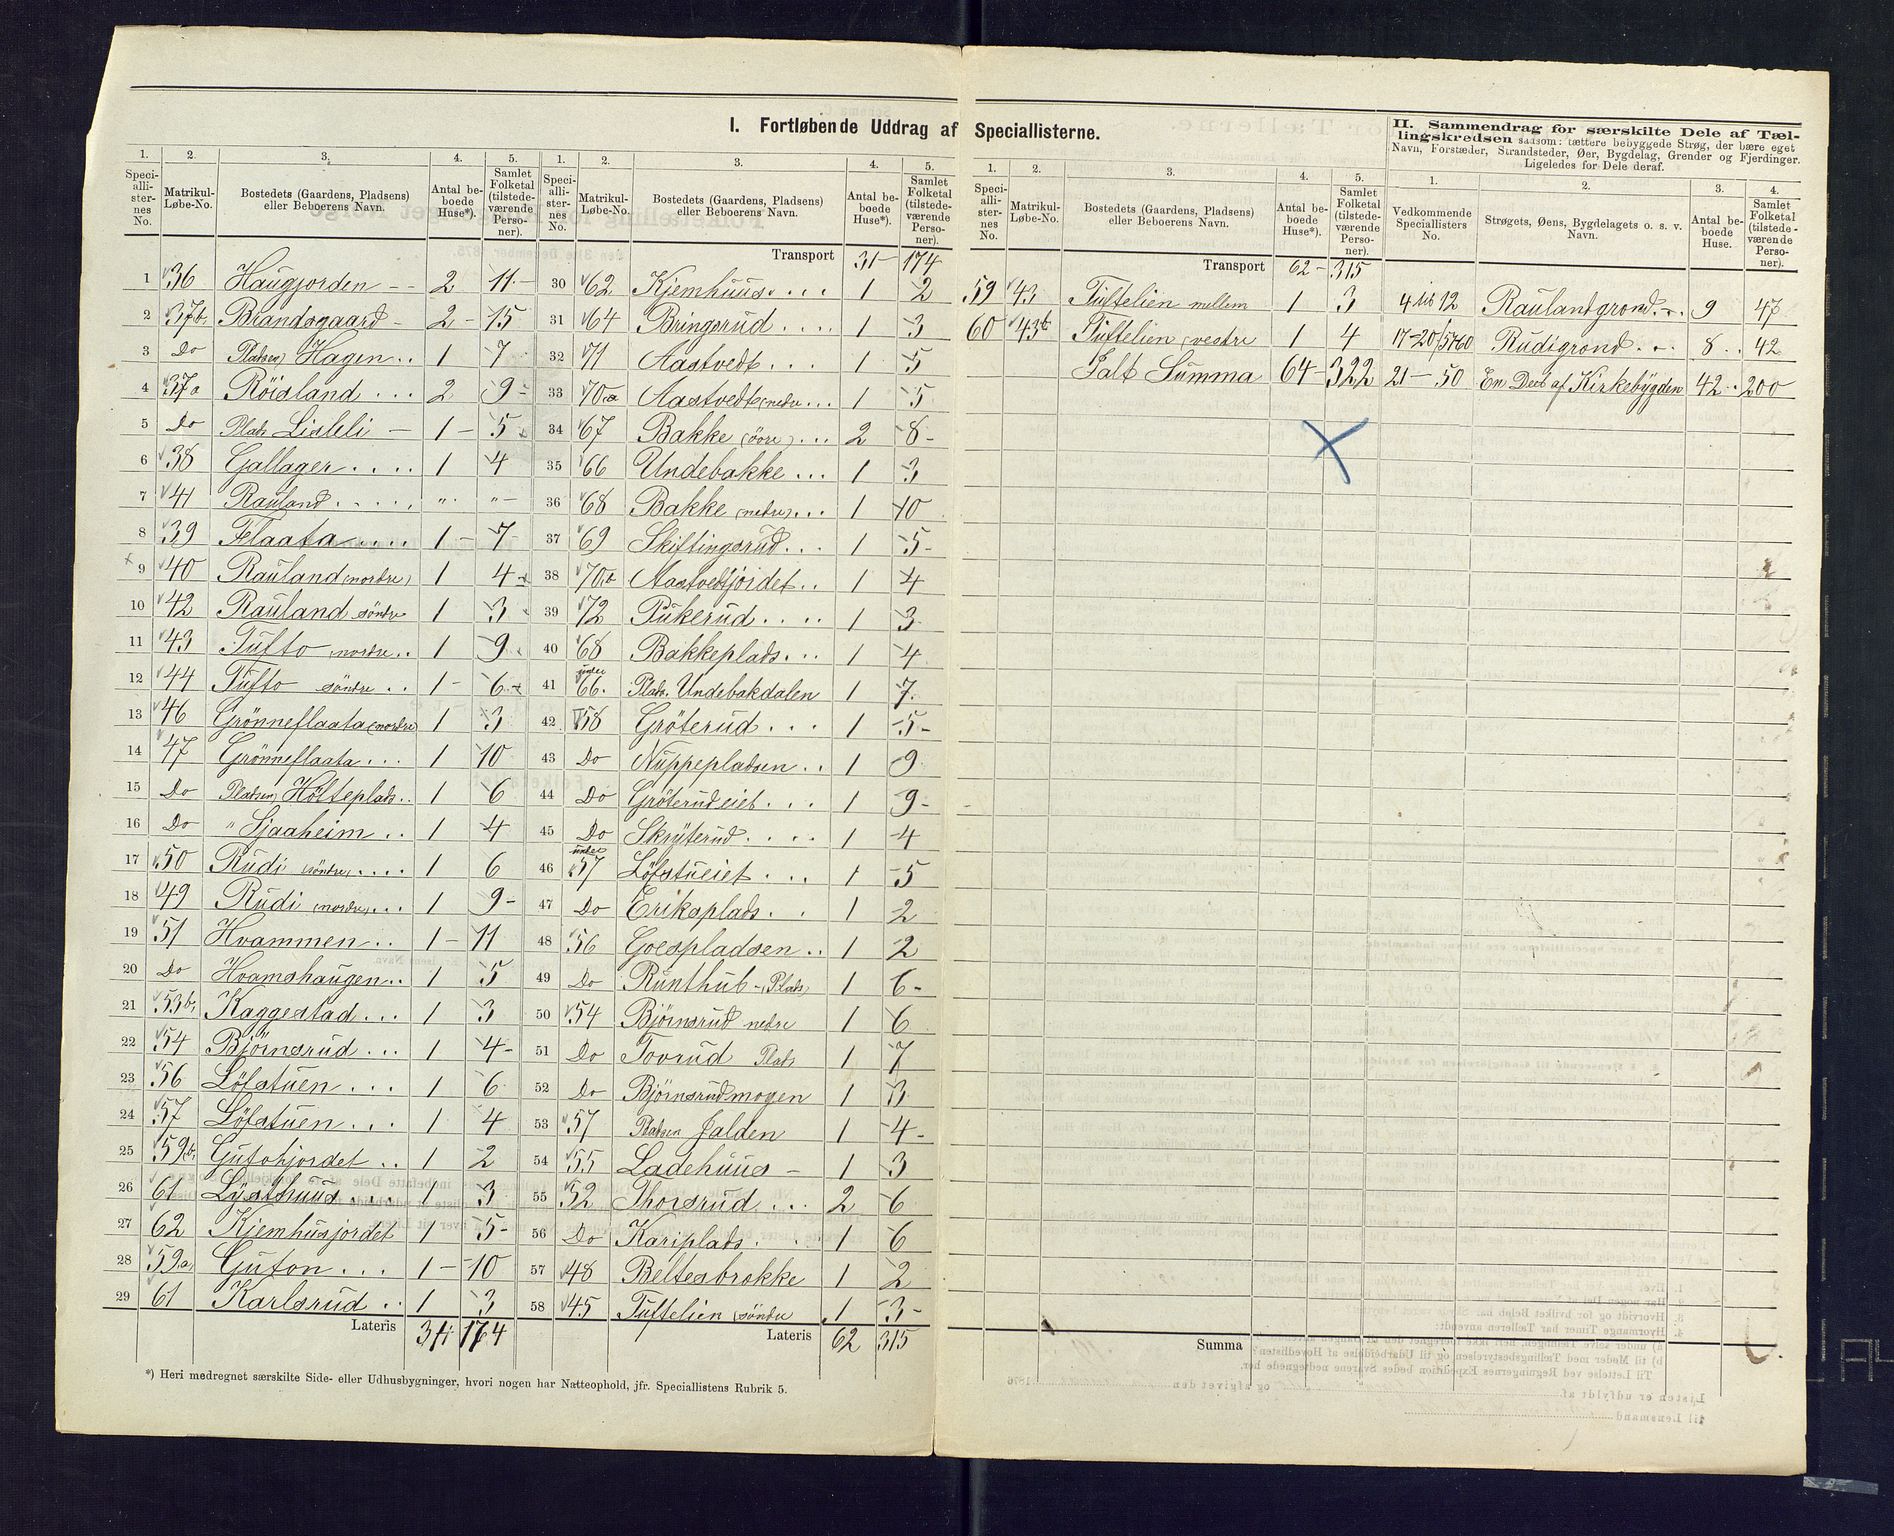 I. Fortløbende Uddrag af Speciallisterne.
II. Sammendrag for særskilte Dele af Tællingskredsen saasom: tættere bebyggede Strøg, der bære eget Navn, Forstæder, Strandsteder, Øer, Bygdelag, Grender og Fjerdinger. Ligeledes for Dele deraf.
1. 2. 3. 4. 5. 1. 2. 3. 4. 5. 1. 2. 3. 4. 5. 1. 2. 3. 4.
Speciallisternes No. Matrikul-Løbe-No. Bostedets (Gaardens, Pladsens) eller Beboerens Navn. Antal beboede Huse*). Samlet Folketal (tilstedeværende Personer).
Speciallisternes No. Matrikul-Løbe-No. Bostedets (Gaardens, Pladsens) eller Beboerens Navn. Antal beboede Huse*). Samlet Folketal (tilstedeværende Personer).
Speciallisternes No. Matrikul-Løbe-No. Bostedets (Gaardens, Pladsens) eller Beboerens Navn. Antal beboede Huse*). Samlet Folketal (tilstedeværende Personer).
Vedkommende Speciallisters No. Strøgets, Øens, Bygdelagets o. s. v. Navn. Antal beboede Huse. Samlet Folketal (tilstedeværende Personer).
1 36 Haugjorden 2 11
2 37b. Brandsgaard 2 15
3 Do Pladsen Hagen 1 7
4 37a Röisland 2 9
5 Do Plads Lisleli 1 5
6 38 Gallager 1 4
7 41 Rauland " "
8 39 Flaata 1 7
9 40 Rauland (nordre) 1 4
10 42 Rauland söndre 1 3
11 43 Tufto nordre 1 9
12 44 Tufto söndre 1 6
13 46 Grönneflaata (nordre) 1 3
14 47 Grönneflaata 1 10
15 Do Pladsen Hölteplads 1 6
16 Do " Sjaaheim 1 4
17 50 Rudi (söndre) 1 6
18 49 Rudi (nordre) 1 9
19 51 Hvammen 1 11
20 Do Hvamshaugen 1 5
21 53b. Kaggestad 1 3
22 54 Björnsrud 1 4
23 56 Löfstuen 1 6
24 57 Löfstuen 1 4
25 59b. Gutohjordet 1 2
26 61 Lysthuus 1 3
27 62 Kjemhusjordet 1 5
28 59a Guton 1 10
29 61 Karlsrud 1 3
Lateris 31 174
Transport 31 174
30 62 Kjemhuus 1 2
31 64 Bringsrud 1 3
32 71 Aastvedt 1 5
33 70a Aastvedt (nedre 1 5
34 67 Bakke (övre) 2 8
35 66 Undebakke 1 3
36 68 Bakke (nedre) 1 10
37 69 Skiftingsrud 1 5
38 70b Aastvedtjordet 1 4
39 72 Pukerud 1 3
40 68 Bakkeplads 1 4
41 under 66. Plads. Undebakdalen 1 7
42 58 Gröterud 1 5
43 Do Nuppepladsen 1 9
44 Do Gröterudeiet 1 9
45 Do Skryterud 1 4
46 under 57 Löfstueiet 1 5
47 Do Eriksplads 1 2
48 56 Goespladsen 1 2
49 Do Runthub (Plads) 1 6
50 54 Björnsrud nedre 1 6
51 Do Tovrud Plads 1 7
52 Do Björnsrudmogen 1 3
53 57 Pladsen Jalden 1 4
54 55 Ladehuus 1 3
55 52 Thorsrud 2 6
56 Do Kariplads 1 6
57 48 Beltesbrække 1 2
58 45 Tuftelien (söndre 1 3
Lateris 62 315
Transport 62 315
59 43 Tuftelien mellem 1 3
60 43b Tuftelien vestre 1 4
Ialt Summa 64 322
4 til 12 Raulandgrond 9 47
17-20/5760 Rudigrond 8 42
21-50 En Deel af Kirkebygden 42 200
Summa
*) Heri medregnet særskilte Side- eller Udhusbygninger, hvori nogen har Natteophold, jfr. Speciallistens Rubrik 5.